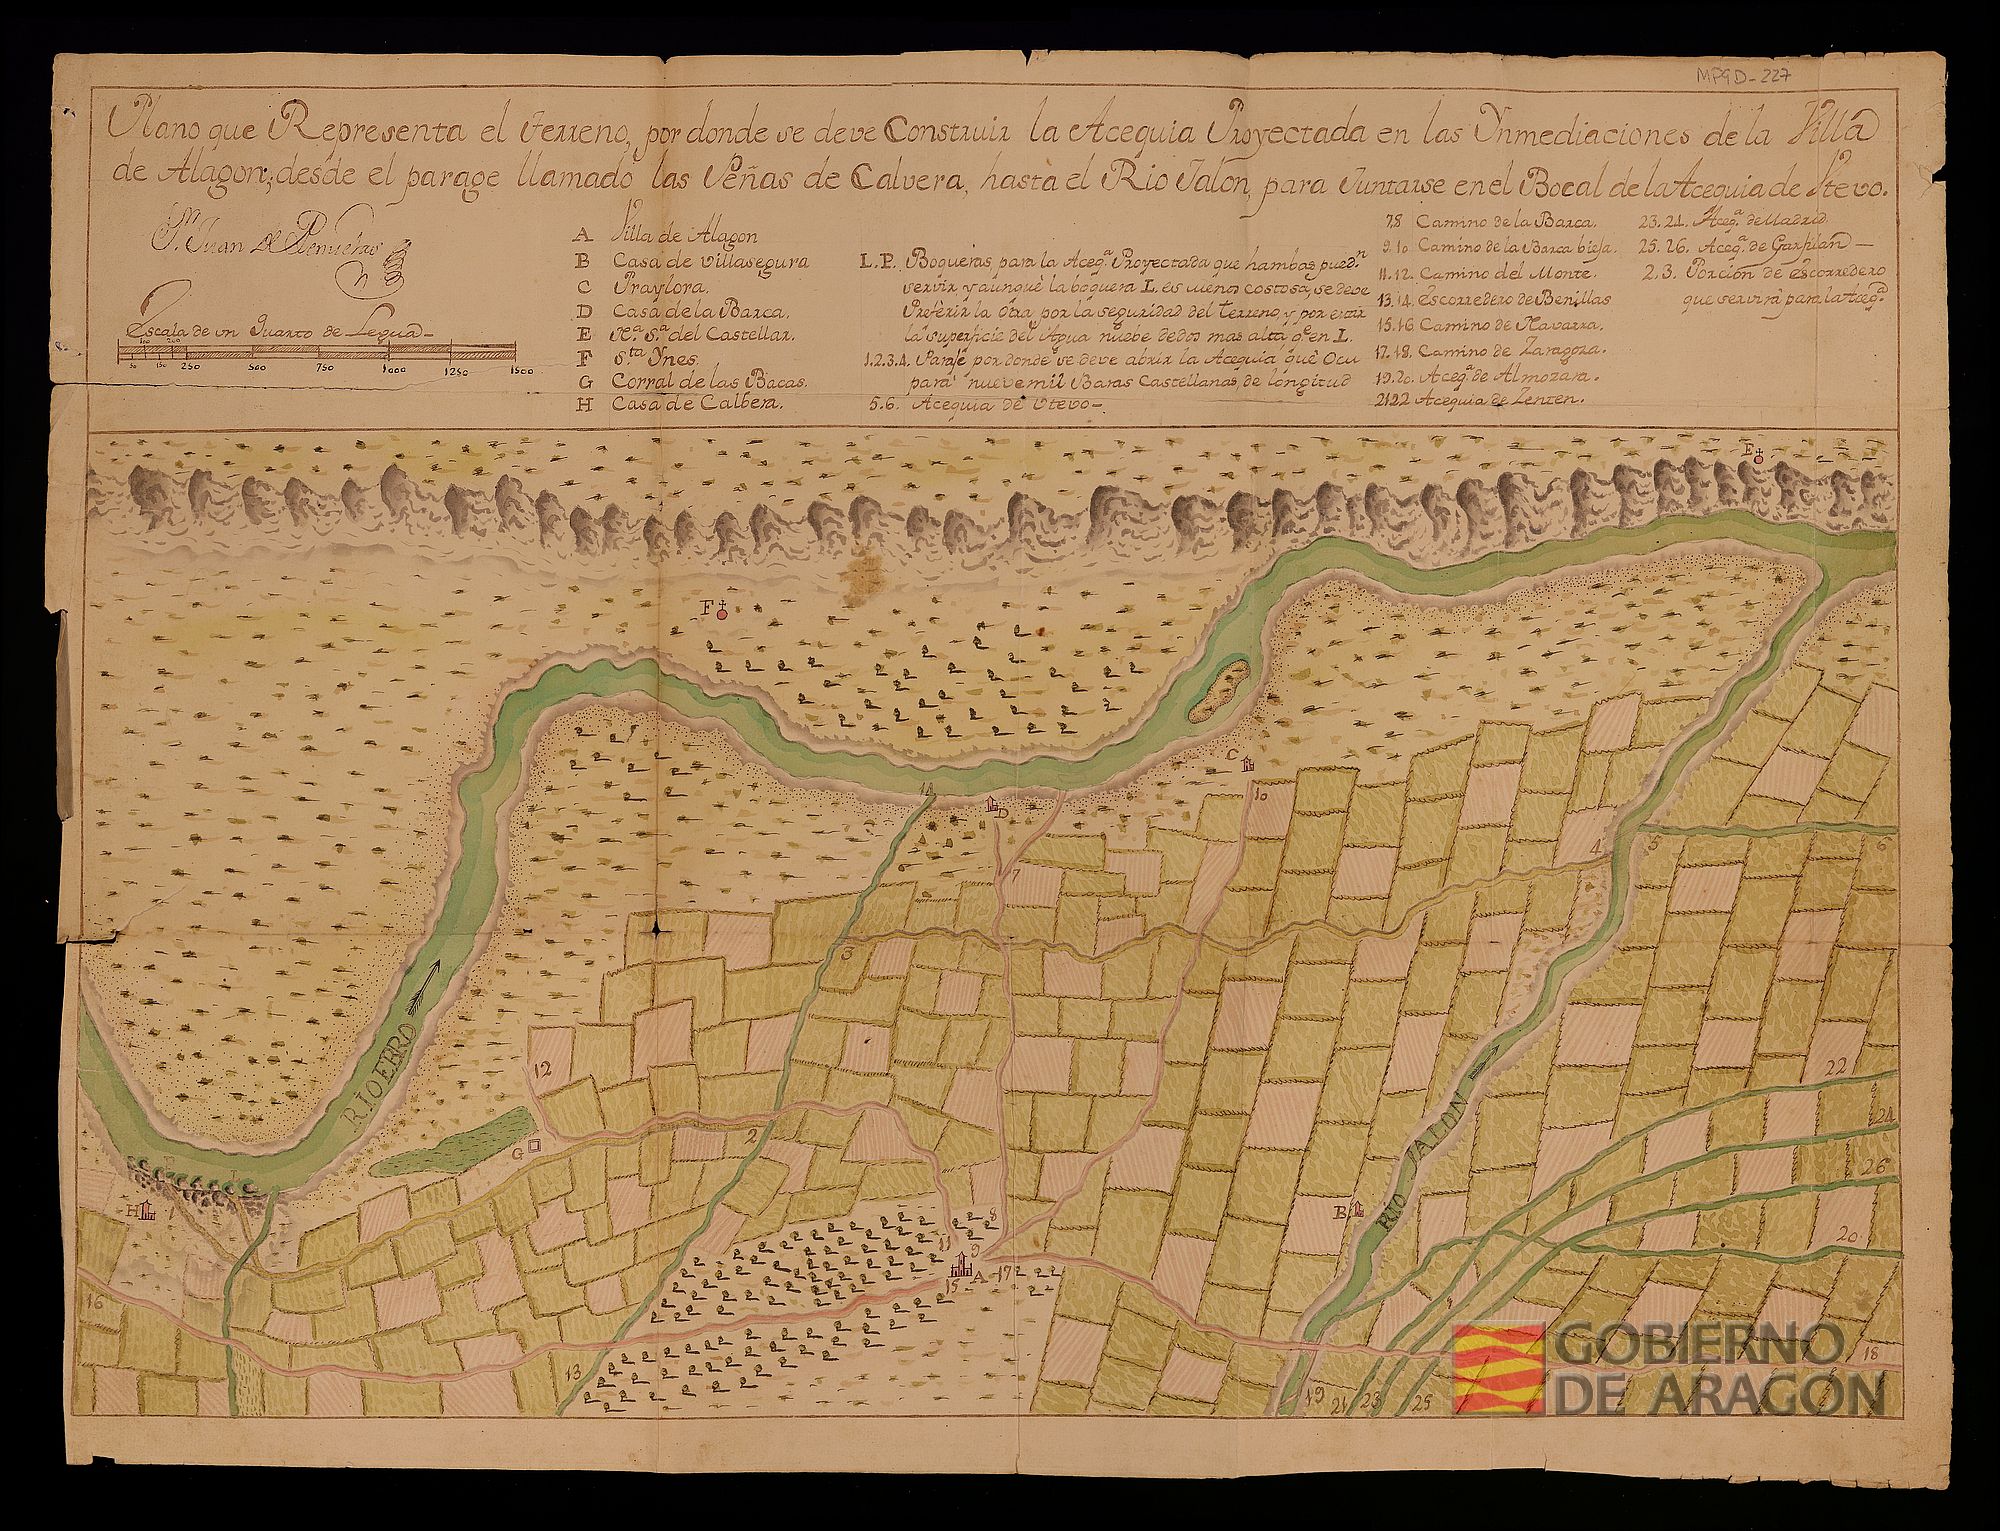 MP9D-227
Plano que Representa el terreno, por donde se deve Construir la Acequia Proyectada en las Ynmediaciones de la Villa
de Alagon; desde el parage llamado las Peñas de Calvera, hasta el Rio Jalon, para Juntarse en el Bocal de la Acequia de Vtevo.
Juan De
Escala de vn Quarto de Legua
100 200
50 150 250 500 750 1000 1250 1500
A Villa de Alagon
B Casa de villasegura
C Fraylora.
D Casa de la Barca.
E Nª. Sª. del Castellar.
F Sta Ynes.
G Corral de las Bacas.
H Casa de Calbera.
L.P. Boqueras para la Aceqª. Proyectada que hambas puedn
servir y aunque la boquera L es menos costosa, se deve
Preferir la otra por la seguridad del Terreno, y por estar
la superficie del Agua nuebe dedos mas alta qe. en L.
1.2.3.4. Paraje por donde se deve abrir la Acequia que Ocu
para nueve mil Baras Castellanas de longitud
5.6. Acequia de Vtevo
7.8 Camino de la Barca.
9.10 Camino de la Barca bieja.
11.12. Camino del Monte.
13.14. Escorredero de Benillas
15.16 Camino de Navarra.
17.18. Camino de Zaragoza.
19.20. Aceqª. de Almozara.
21.22 Acequia de Centen.
23.24. Aceqª. de Madrid
25.26. Aceqª. de Garfilan
2.3. Porcion de escorredero
que servirà para la Aceqª
E
F
C
10
14
D
7
4
5
6
3
RIO EBRO
12
22
24
2
G
RIO JALON
26
H
B
8
11
9
20
15 A 17
16
18
13
19 21 23 25
GOBIERNO
DE ARAGON